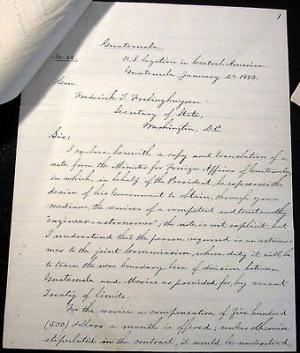 1
Guatemala
No. 55.
U.S. Legation in Central America
Guatemala January 2nd 1883.
Hon.
Frederick T. Frelinghuysen
Secretary of State,
Washington, D.C.
Sir:
I enclose herewith a copy and translation of a
note from the Minister for Foreign Affairs of Guatemala,
in which, in behalf of the President, he expresses the
desire of his Government to obtain, through your
medium, the services of a competent and trustworthy
Engineer-astronomer; the note is not explicit, but
I understand that the person required is an astrono-
mer to the joint Commission whose duty it will be
to trace the new boundary line of division between
Guatemala and Mexico as provided for, by recent
Treaty of Limits.
For the service a compensation of five hundred
(500) dollars a month is offered; unless otherwise
stipulated in the contract, it would be understood,